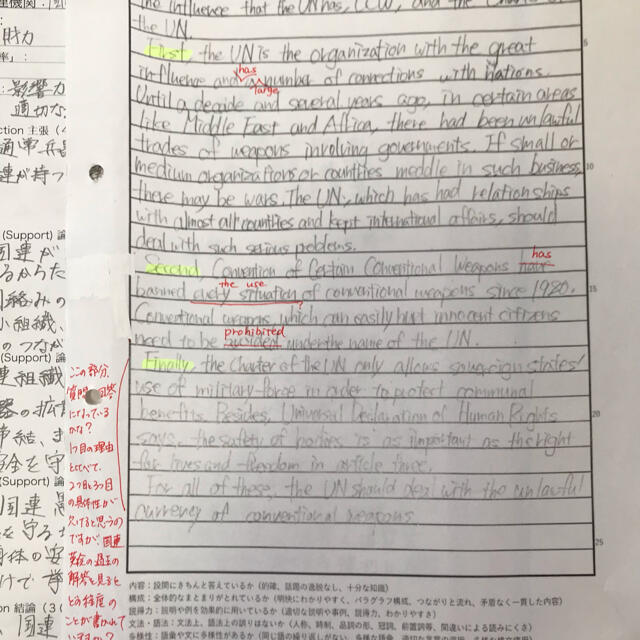 the influence that the UN has, CCW, and the Charter of
the UN.
First, the UN is the organization with the great
has
influence and a number of connections with nations.
large
Until a decide and several years ago, in certain areas
like Middle East and Africa, there had been unlawful
trades of weapons involving governments. If small or
medium organizations or countries meddle in such business,
there may be wars. The UN, which has had relationships
with almost all countries and kept international affairs, should
deal with such serious problems.
has
Second, Convention of Certain Conventional Weapons have
the use
banned every situation of conventional weapons since 1980.
Conventional weapons which can easily hurt innocent citizens
prohibited
need to be avoided under the name of the UN.
Finally, the Charter of the UN only allows sovereign states'
use of military force in order to protect communal
benefits. Besides, Universal Declaration of Human Rights
says, the safety of bodies is as important as the right
for lives and freedom in article three.
For all of these, the UN should deal with the unlawful
currency of conventional weapons.
5
10
15
20
25
財力
影響力
適切な
ction 主張 (4
通常兵器
連が持つ
(Support) 論
国連が
るからた
国絡みの
小組織、
のつなが
(Support) 論
連組織
器の拡
(Support) 論
国連
を守る
身体の安
けで
on 結論 (3
国連
この部分、
質問の回答
になっている
かな?
1つ目の理由
と比べて、
2つ目、3つ目
の具体性が
欠けると思うの
ですが、関連
英表の過去の
解答を見ると
この程度の
ことが書かれて
いますか?
内容：設問にきちんと答えているか (的確、話題の逸脱なし、十分な知識)
構成：全体的なまとまりがとれているか (明快にわかりやすく、パラグラフ構成、つながりと流れ、矛盾なく一貫した内容)
説得力：説明や例を効果的に用いているか (適切な説明や事例、説得力、わかりやすさ)
文法・語法：文法上、語法上の誤りはないか (人称、時制、品詞の形、冠詞、前置詞等、間違いによる読みにくさ)
多様性：語彙や文に多様性があるか